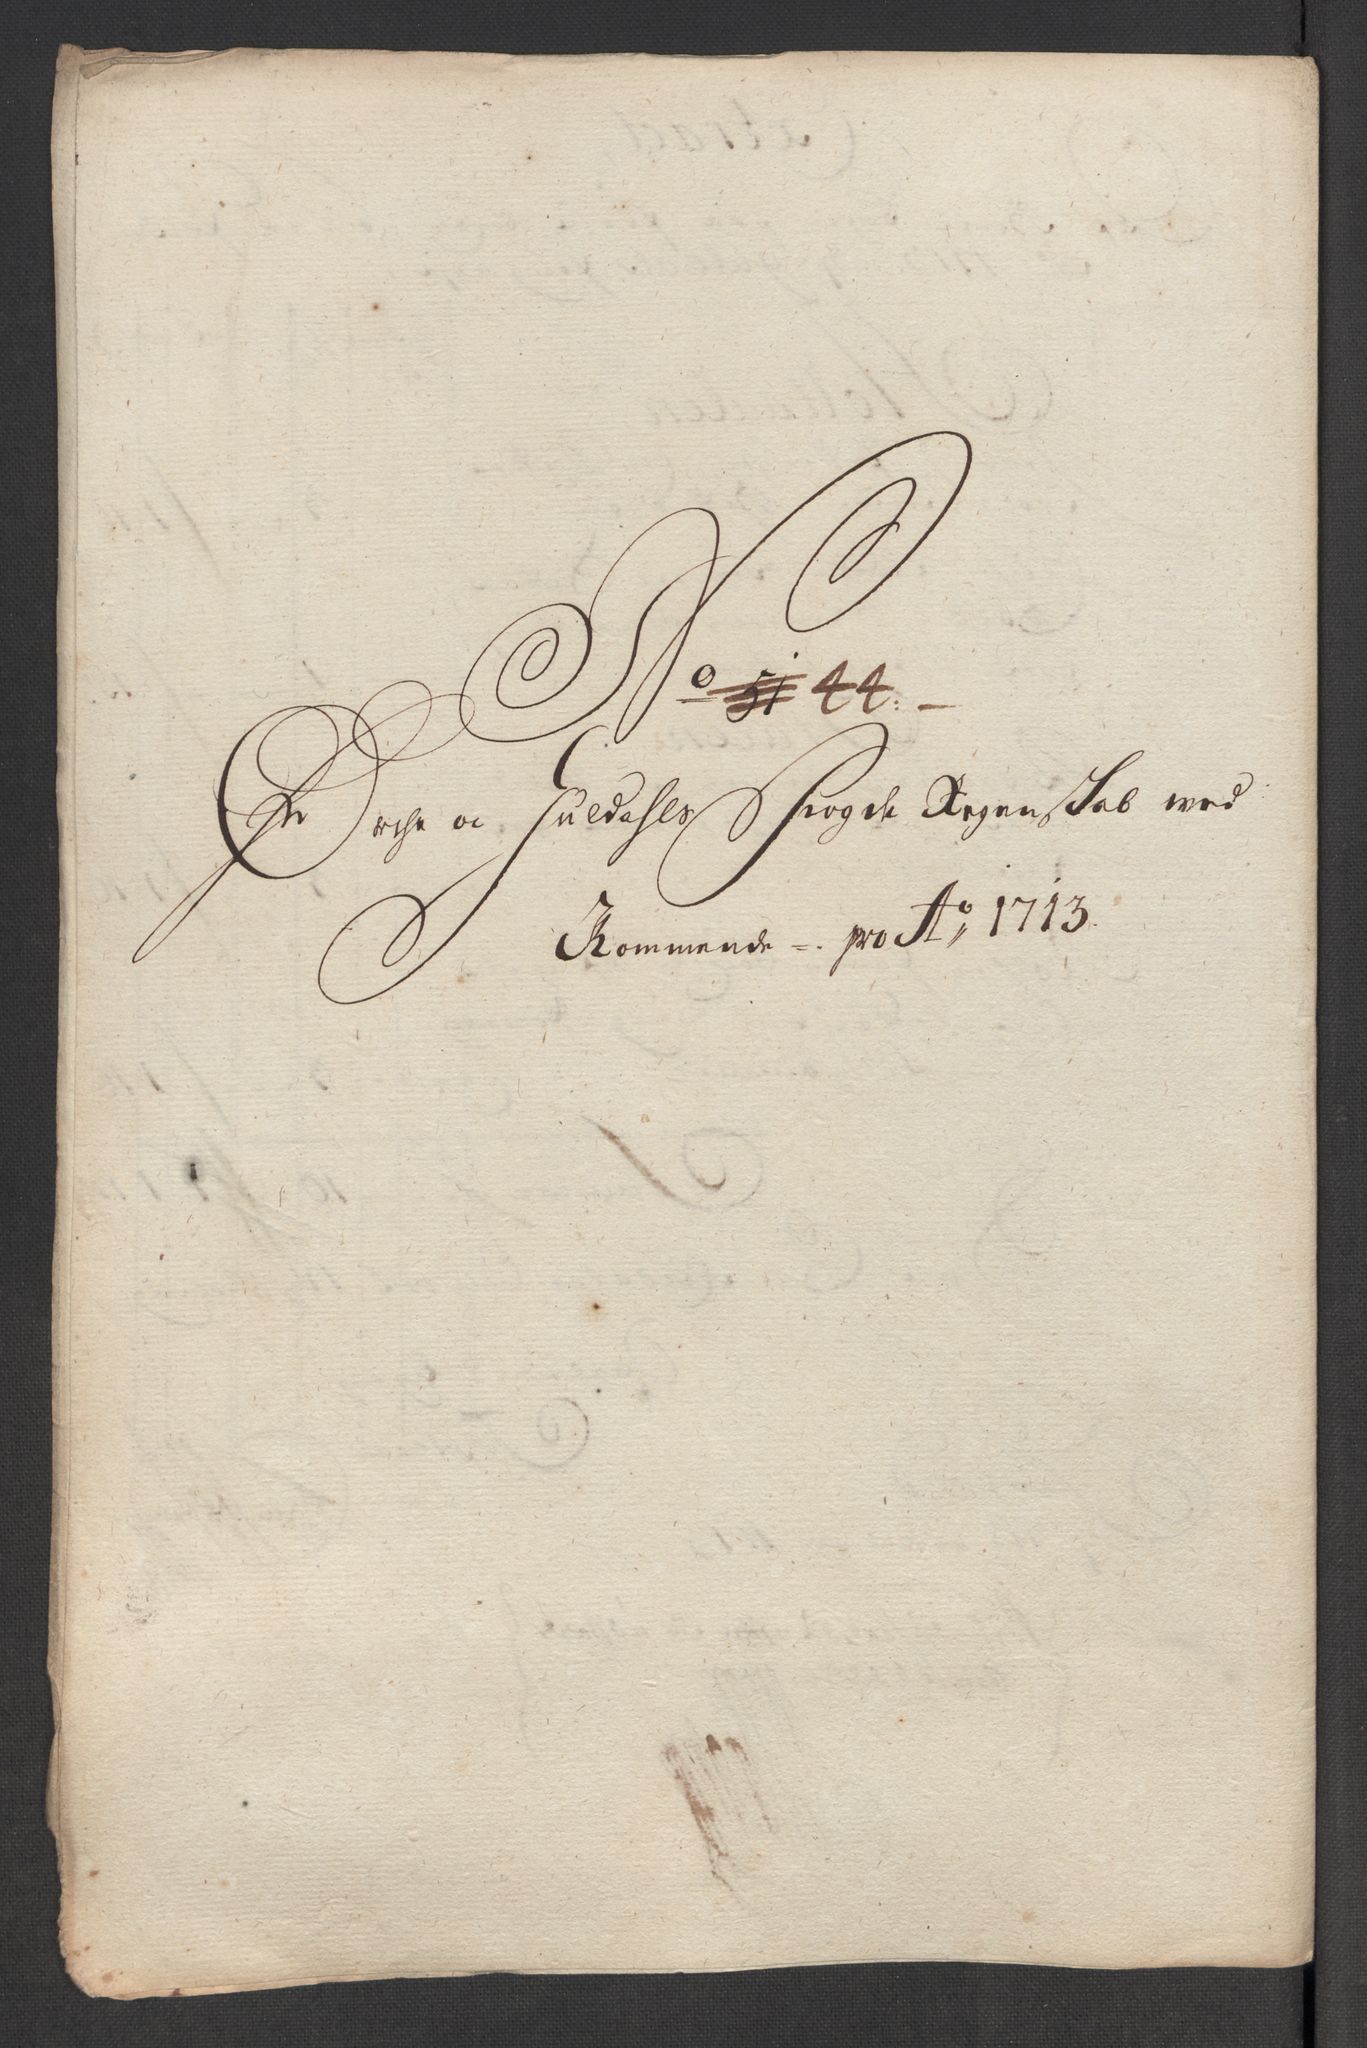 No 51 44.
Orche og Guldahls Fogde Regenskab wed
Kommende pro Ao 1713.